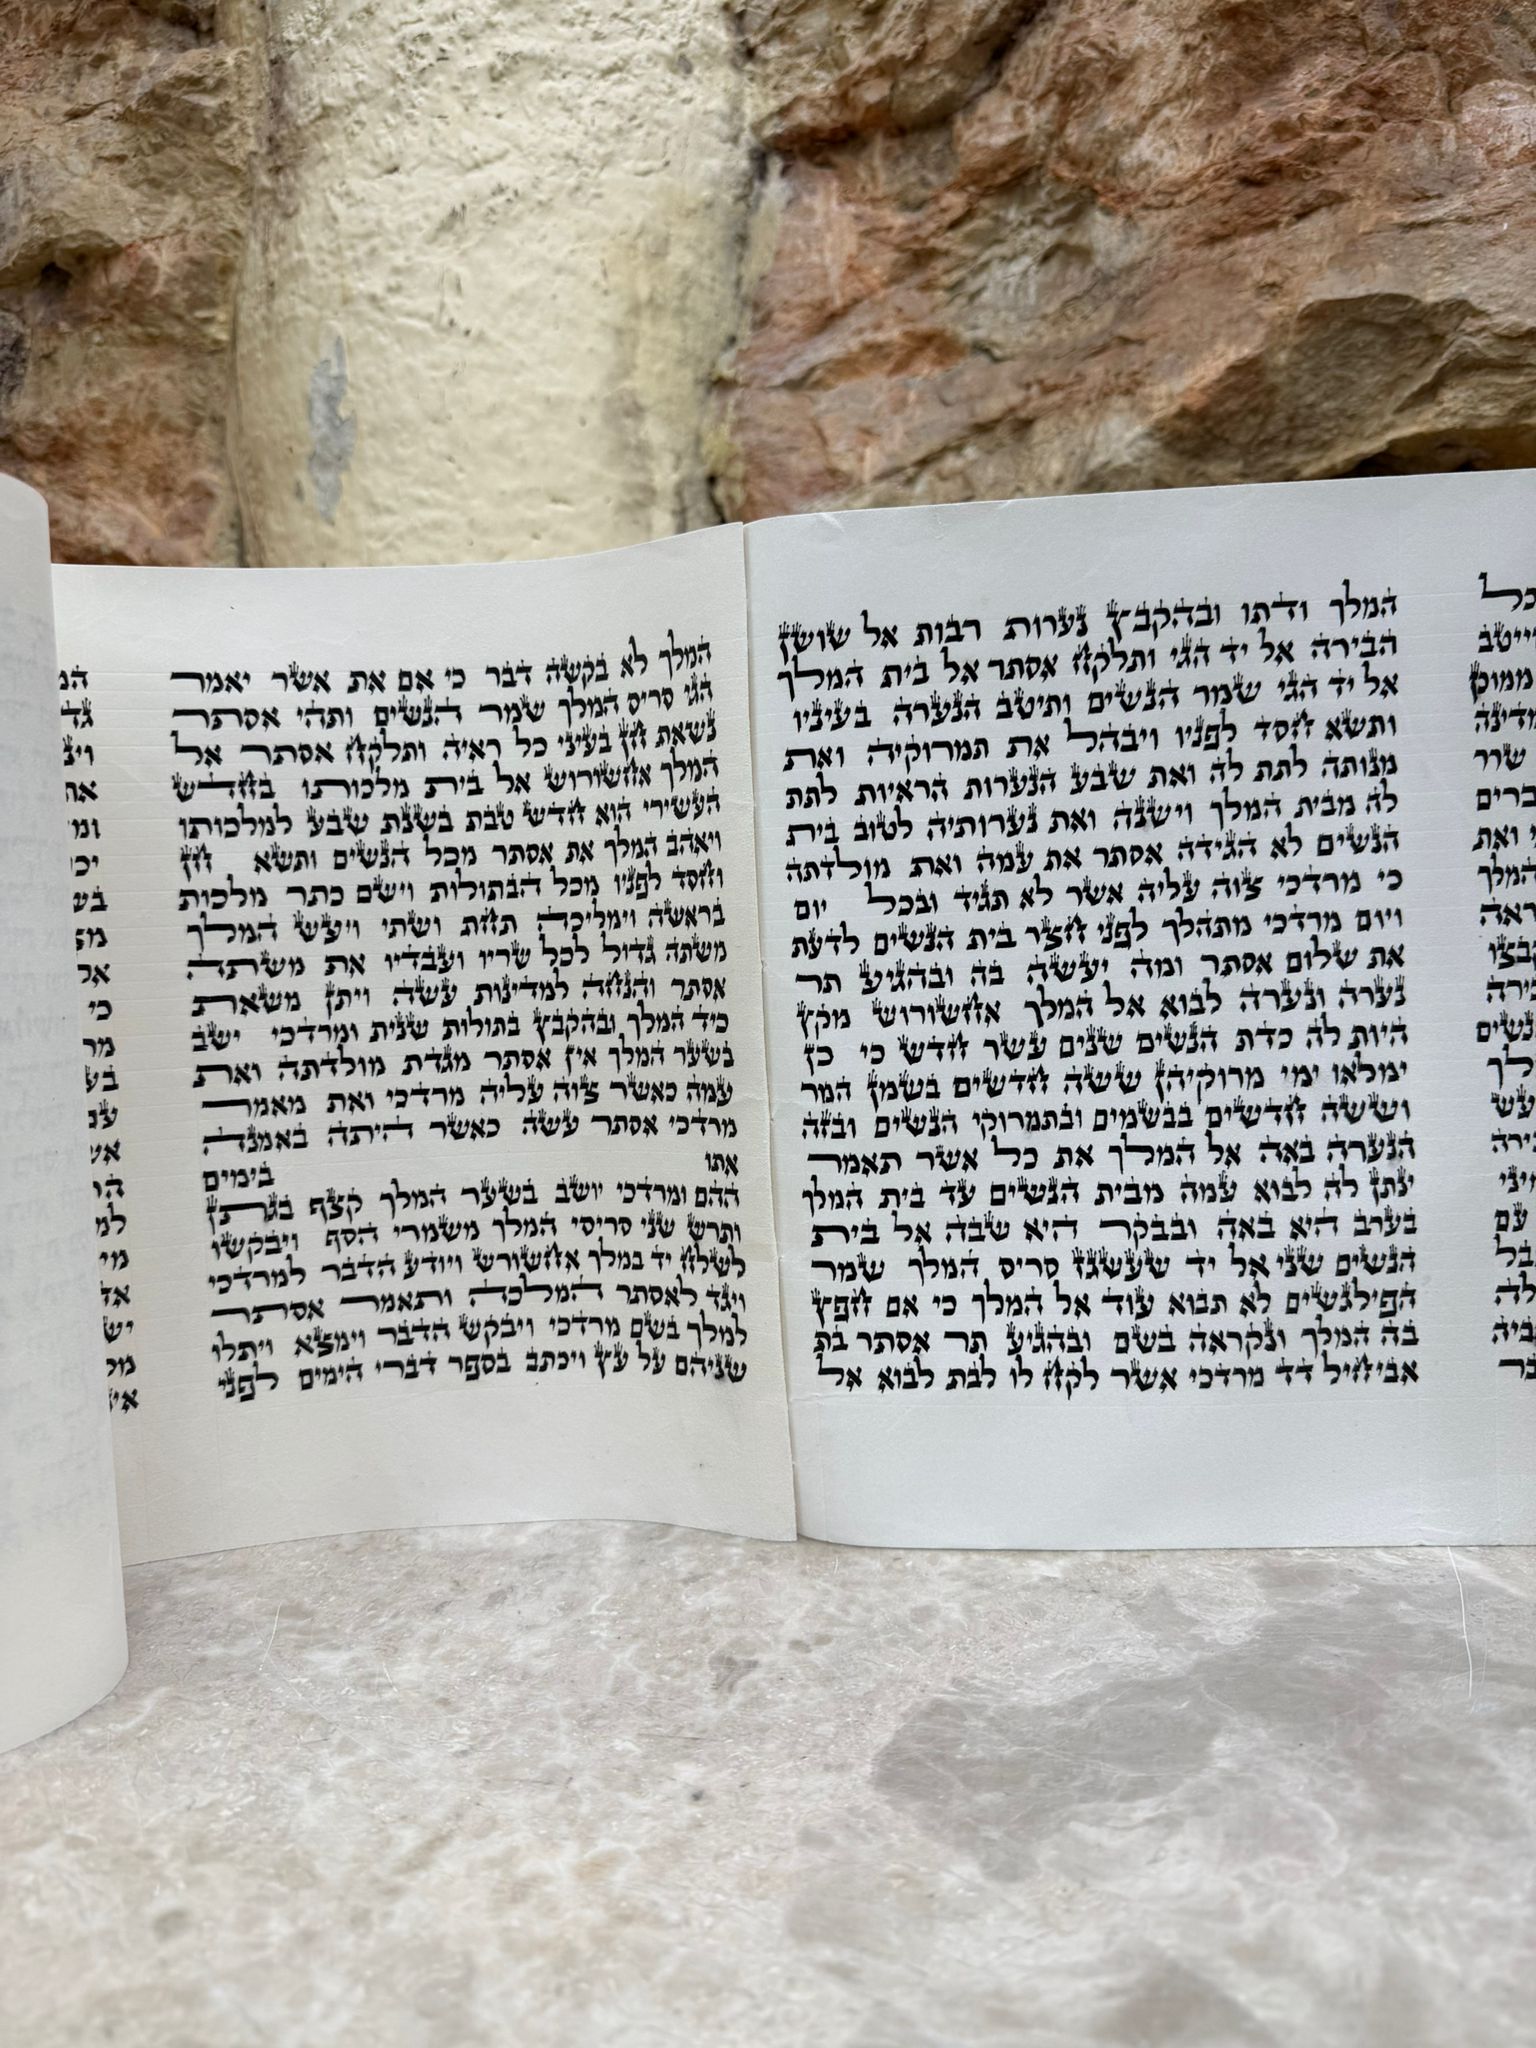 כל
ייטב
ממוכן
מדינה
שרר
ואת
המלך
המלך ודתו ובהקבץ נערות רבות אל שושן
הבירה אל יד הגי ותלקח אסתר אל בית המלך
אל יד הגי שמר הנשים ותיטב הנערה בעיניו
ותשא חסד לפניו ויבהל את תמרוקיה ואת
מנותה לתת לה ואת שבע הנערות הראיות לתת
לה מבית המלך וישנה ואת נערותיה לטוב בית
הנשים לא הגידה אסתר את עמה ואת מולדתה
כי מרדכי צוה עליה אשר לא תגיד ובכל יום
ויום מרדכי מתהלך לפני חצר בית הנשים לדעת
את שלום אסתר ומה יעשה בה ובהגיע תר
נערה ונערה לבוא אל המלך אחשורוש מקץ
היות לה כדת הנשים שנים עשר חדש כי כן
ימלאו ימי מרוקיהן ששה חדשים בשמן המר
וששה חדשים בבשמים ובתמרוקי הנשים ובזה
הנערה באה אל המלך את כל אשר תאמר
ינתן לה לבוא עמה מבית הנשים עד בית המלך
בערב היא באה ובבקר היא שבה אל בית
הנשים שני אל יד שעשגז סריס המלך שמר
הפילגשים לא תבוא עוד אל המלך כי אם חפץ
בה המלך ונקראה בשם ובהגיע תר אסתר בת
אביחיל דד מרדכי אשר לקח לו לבת לבוא אל
המלך לא בקשה דבר כי אם את אשר יאמר
הגי סריס המלך שמר הנשים ותהי אסתר
נשאת חן בעיני כל ראיה ותלקח אסתר אל
המלך אחשורוש אל בית מלכותו בחדש
העשירי הוא חדש טבת בשנת שבע למלכותו
ויאהב המלך את אסתר מכל הנשים ותשא חן
וחסד לפניו מכל הבתולות וישם כתר מלכות
בראשה וימליכה תחת ושתי ויעש המלך
משתה גדול לכל שריו ועבדיו את משתה
אסתר והנחה למדינות עשה ויתן משאת
כיד המלך ובהקבץ בתולות שנית ומרדכי ישב
בשער המלך אין אסתר מגדת מולדתה ואת
עמה כאשר צוה עליה מרדכי ואת מאמר
מרדכי אסתר עשה כאשר היתה באמנה
אתו בימים
ההם ומרדכי יושב בשער המלך קצף בגתן
ותרש שני סריסי המלך משמרי הסף ויבקשו
לשלח יד במלך אחשורש ויודע הדבר למרדכי
ויגד לאסתר המלכה ותאמר אסתר
למלך בשם מרדכי ויבקש הדבר וימצא ויתלו
שניהם על עץ ויכתב בספר דברי הימים לפני